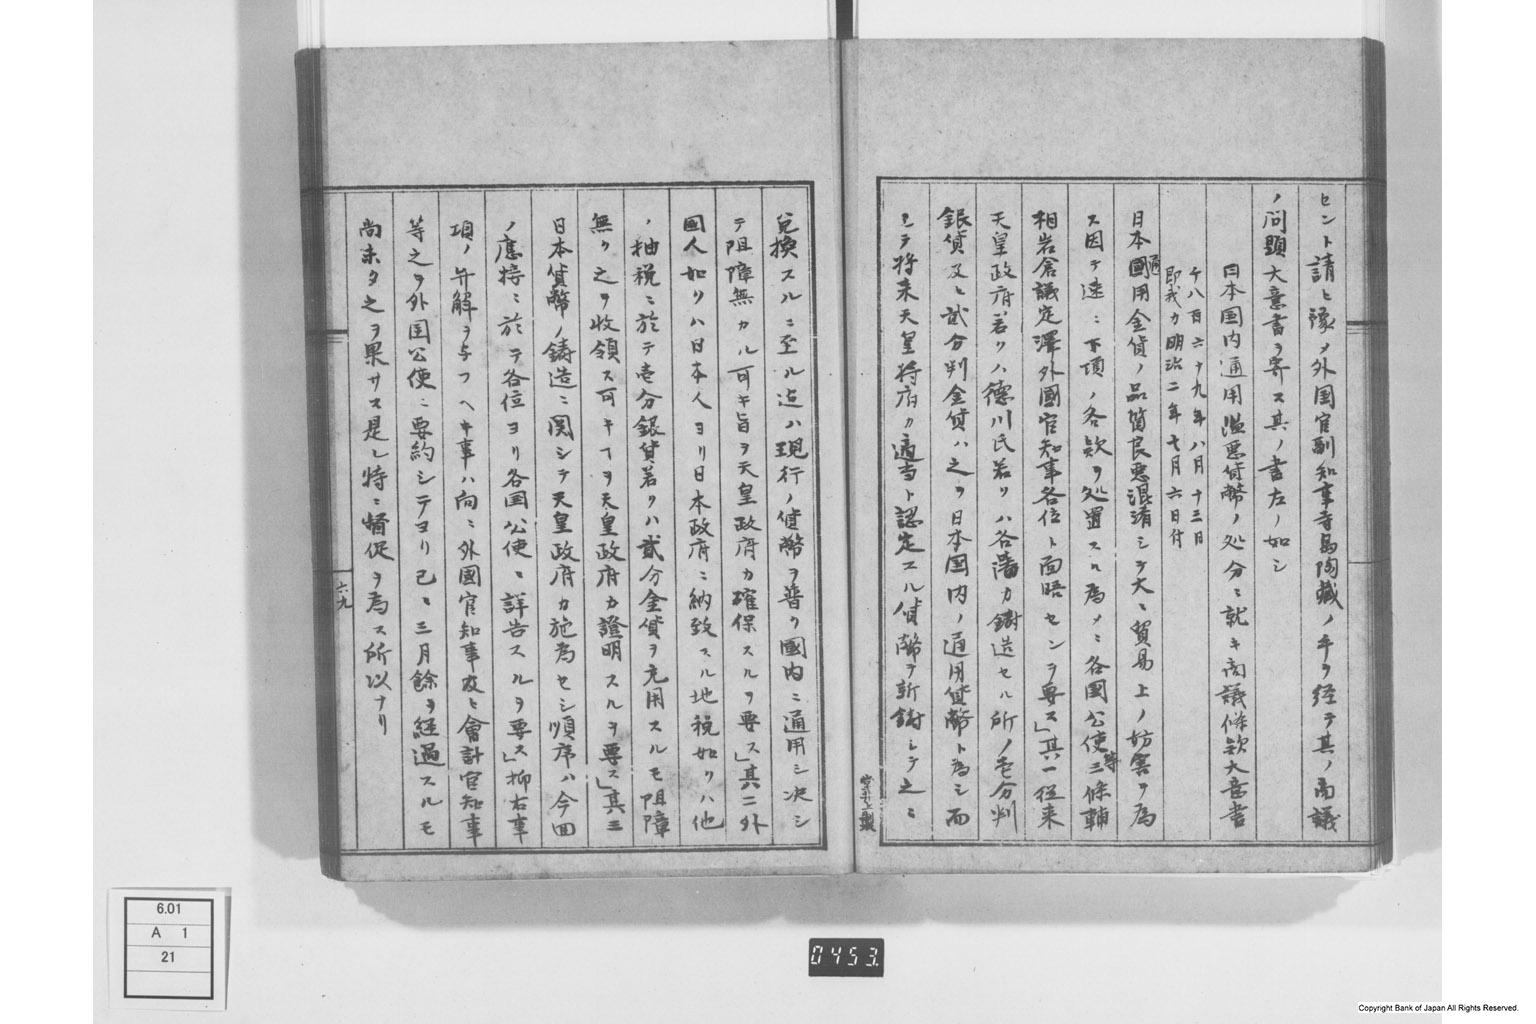 セント請ヒ豫メ外国官副知事寺島陶藏ノ手ヲ経テ其ノ商議
ノ問題大意書ヲ寄ス其ノ書左ノ如シ
日本国内通用濫悪貨幣ノ処分ニ就キ商議條欵大意書
千八百六十九年八月十三日
即我カ明治二年七月六日付
日本國通用金貨ノ品質良悪混淆シテ大ニ貿易上ノ妨害ヲ為
ス因テ速ニ下項ノ各欵ヲ処置スル為メニ各國公使等三條輔
相岩倉議定澤外國官知事各位ト面晤センヲ要ス」其一従来
天皇政府若クハ徳川氏若クハ各藩カ鋳造セル所ノ壱分判
銀貨及ヒ貳分判金貨ハ之ヲ日本国内ノ通用貨幣ト為シ而
シテ将来天皇政府カ適当ト認定スル貨幣ヲ新鋳シテ之ニ
兌換スルニ至ル迠ハ現行ノ貨幣ヲ普ク國内ニ通用シ决シ
テ阻障無カル可キ旨ヲ天皇政府カ確保スルヲ要ス」其二外
國人如クハ日本人ヨリ日本政府ニ納致スル地税如クハ他
ノ抽税ニ於テ壱分銀貨若クハ貳分金貨ヲ充用スルモ阻障
無ク之ヲ收領ス可キヿヲ天皇政府カ證明スルヲ要ス」其三
日本貨幣ノ鋳造ニ関シテ天皇政府カ施為セシ順序ハ今回
ノ應接ニ於テ各位ヨリ各国公使ニ詳告スルヲ要ス」抑右事
項ノ弁解ヲ与フヘキ事ハ向ニ外國官知事及ヒ會計官知事
等之ヲ外国公使ニ要約シテヨリ已ニ三月餘ヲ經過スルモ
尚未タ之ヲ果サス是レ特ニ督促ヲ為ス所以ナリ
六九
6.01
A 1
21
0453
Copyright Bank of Japan All Rights Reserved.